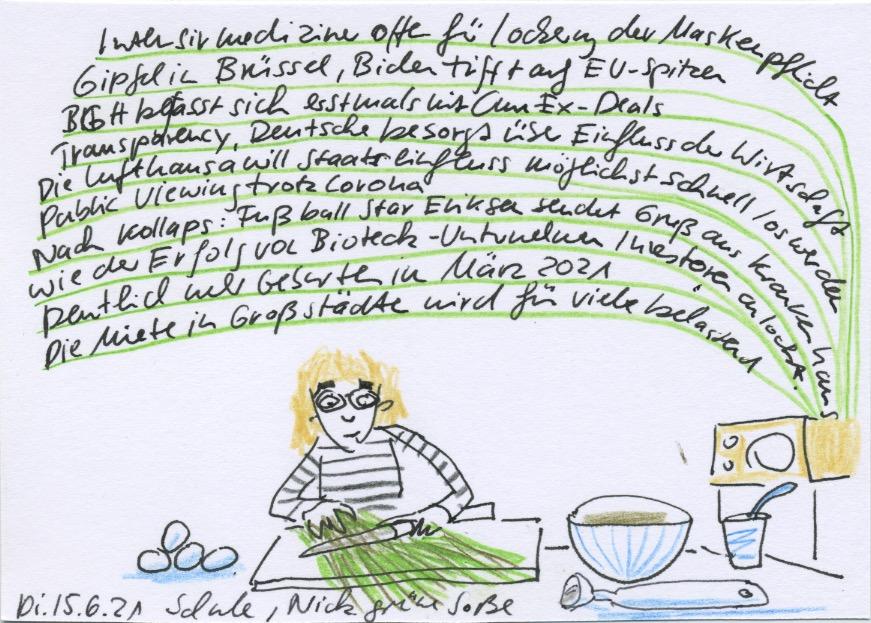 Intensivmediziner offen für Lockerung der Maskenpflicht
Gipfel in Brüssel, Biden trifft auf EU-Spitzen
BGH befasst sich erstmals mit Cum Ex-Deals
Transparency, Deutsche besorgt über Einfluss der Wirtschaft
Die Lufthansa will Staatseinfluss möglichst schnell loswerden
Public Viewing trotz Corona
Nach Kollaps: Fußball star Eriksen sendet Gruß aus Krankenhaus
wie der Erfolg von Biotech-Unternehmen Investoren anlockt.
Deutlich mehr Geburten in März 2021
Die Miete in Großstädte wird für viele belastend
Di.15.6.21 Schule, Nick grüne Soße